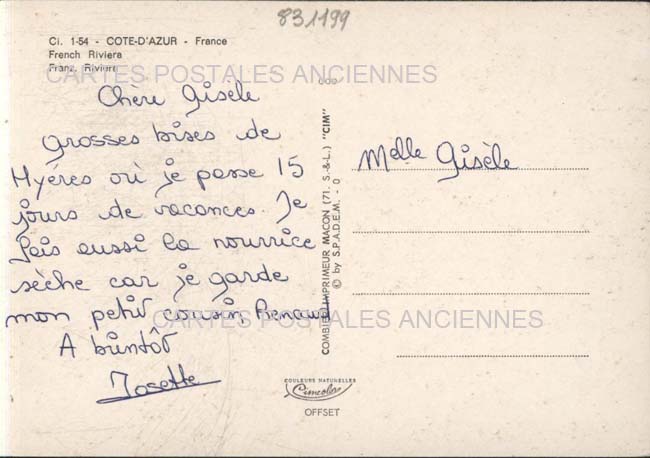 831199
Ci. 1-54 - COTE-D'AZUR - France
French Riviera
Franz. Riviera
CARTES POSTALES ANCIENNES
Chère Gisèle
grosses bises de
Hyères où je passe 15
jours de vacances. Je
fais aussi la nourrice
sèche car je garde
mon petit cousin Renaud
A bientôt
Josette
COMBIER IMPRIMEUR MACON (71. S.-&-L.) "CIM"
© by S.P.A.D.E.M. - 0
Melle Gisèle
CARTES POSTALES ANCIENNES
COULEURS NATURELLES
Cimcolor
OFFSET